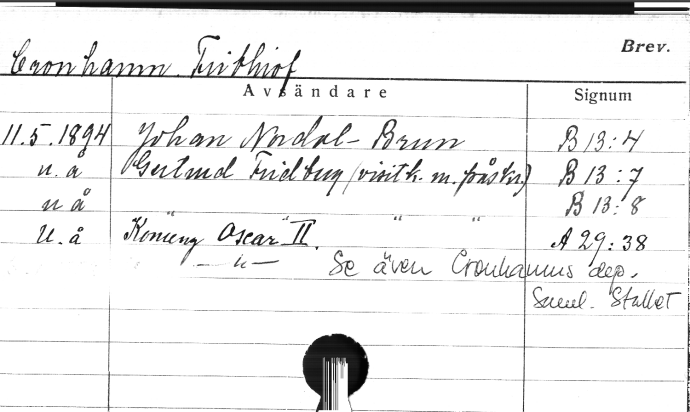 Brev.
Cronhamn. Frithiof
Avsändare Signum
11.5.1894 Johan Nordal-Brun B 13:4
u.å Gertrud Fridberg (visitk. m. påskr.) B 13:7
u å " " B 13:8
U.å Konung Oscar II. A 29:38
— " — Se även Cronhamns dep.
Saml. Stallet